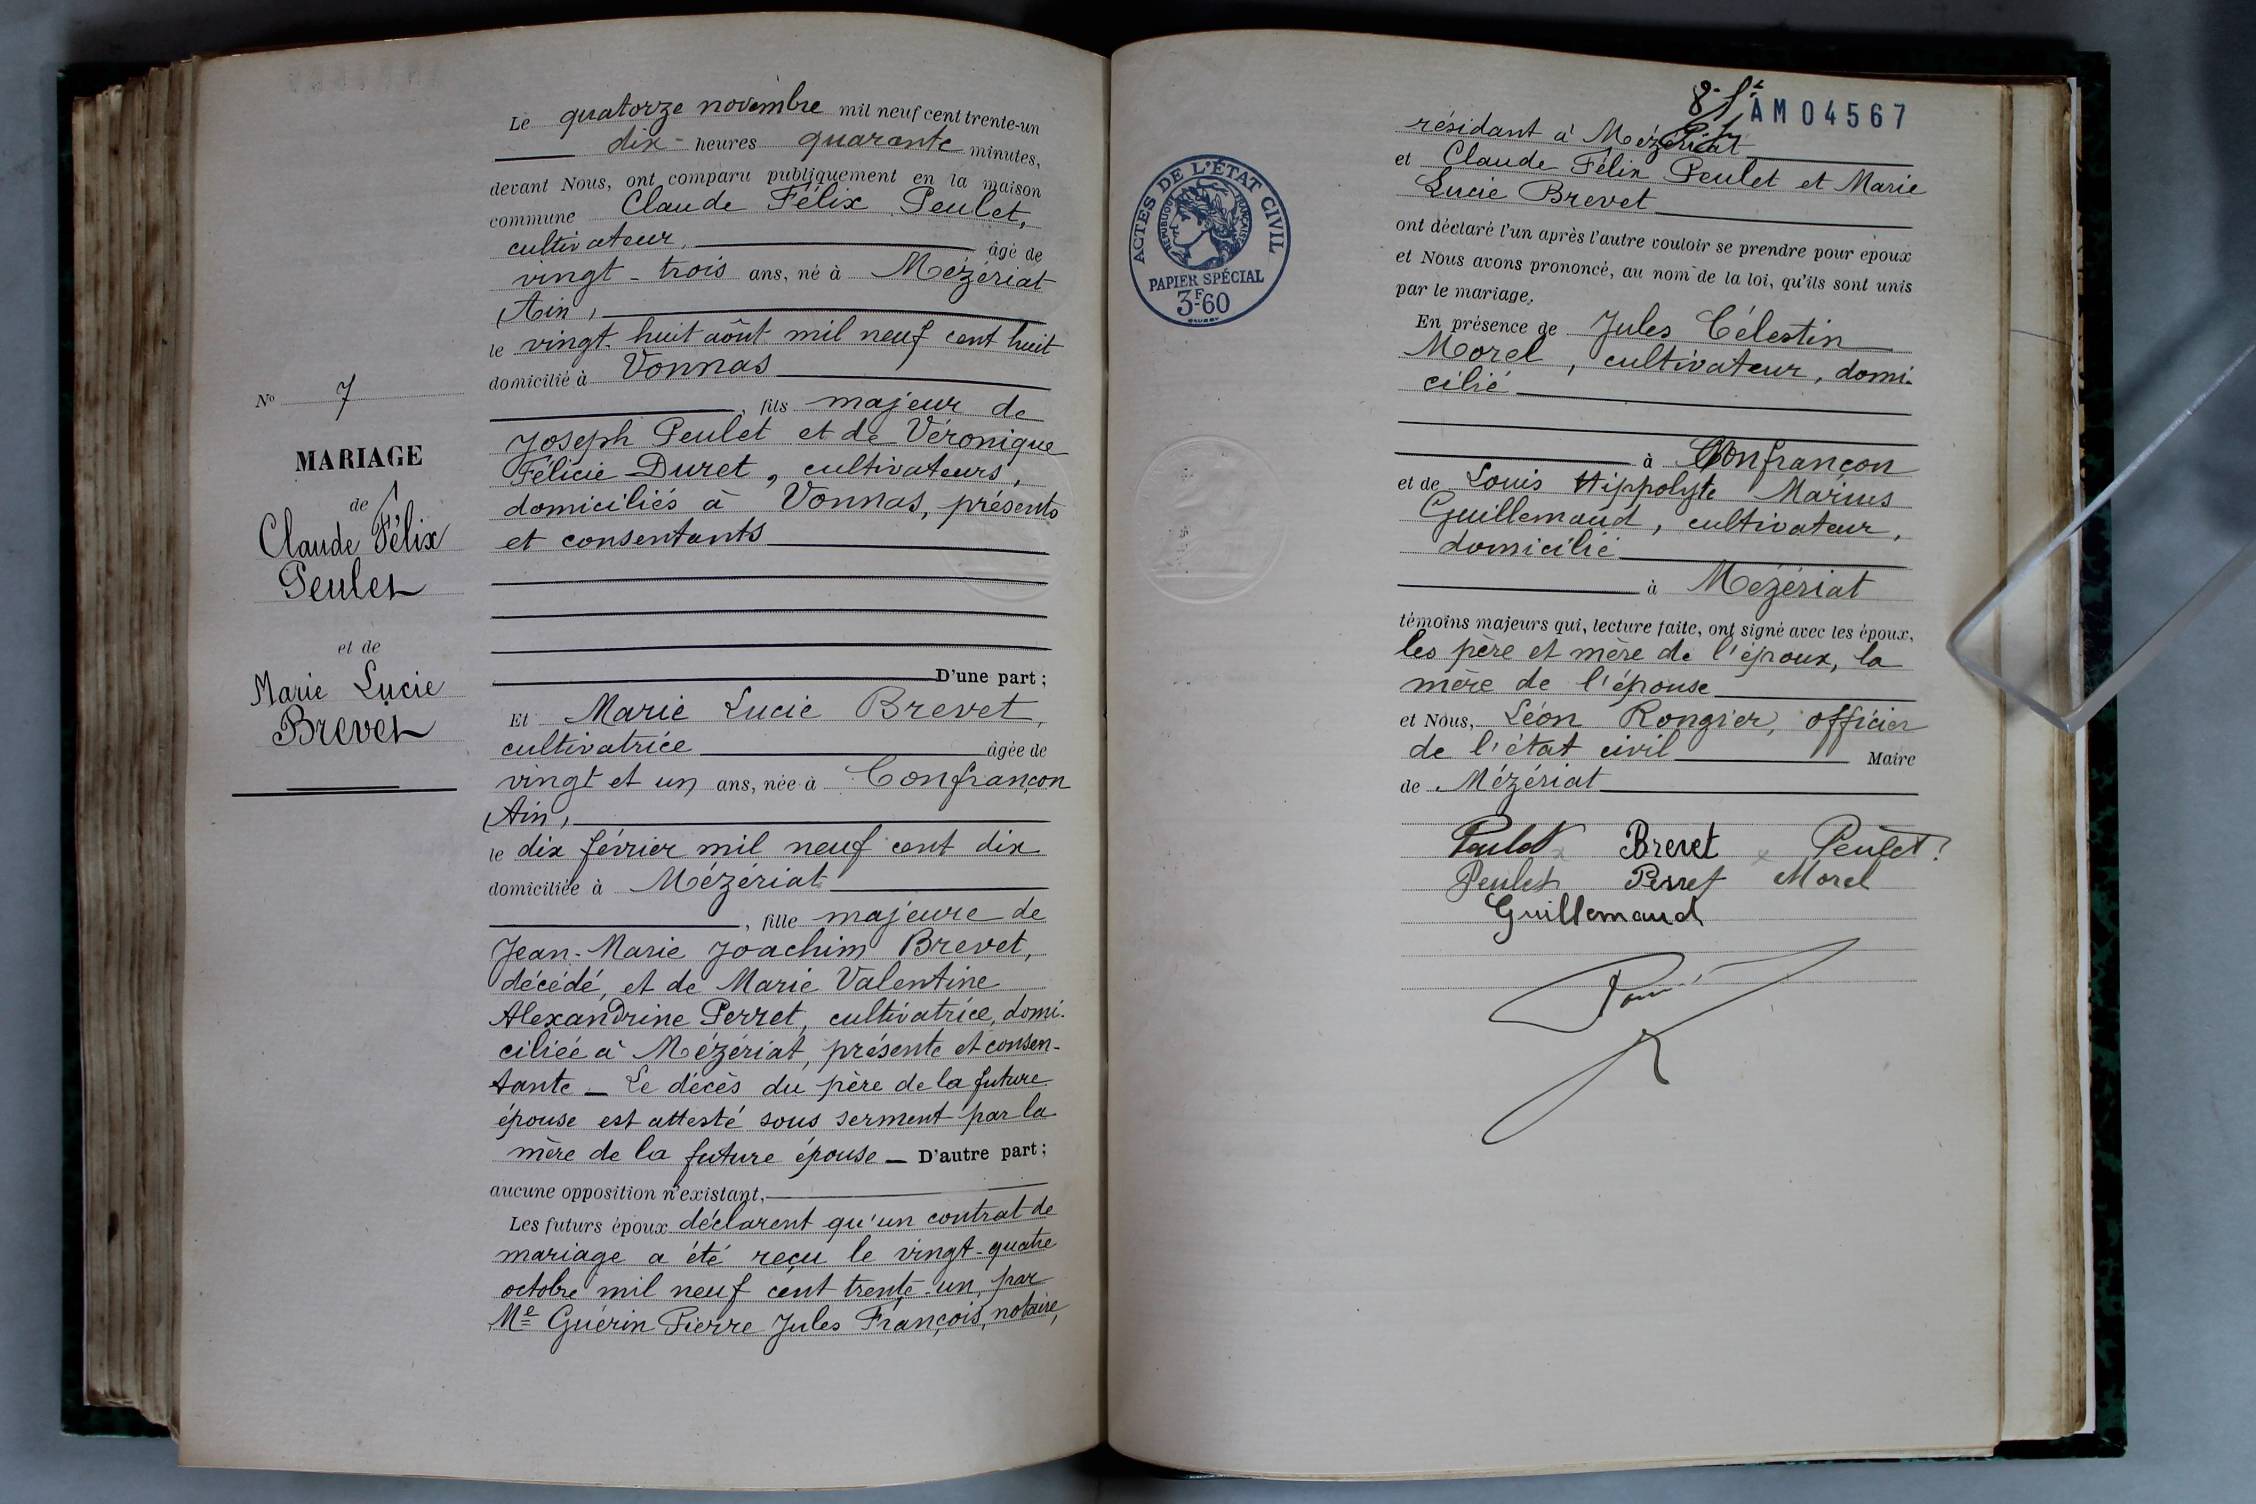 Le quatorze novembre mil neuf cent trente-un
dix - heures quarante minutes,
devant Nous, ont comparu publiquement en la maison
commune Claude Félix Peulet,
cultivateur, âgé de
vingt-trois ans, né à Mézériat
(Ain),
le vingt-huit août mil neuf cent huit
domicilié à Vonnas
, fils majeur de
Joseph Peulet et de Véronique
Félicie Duret, cultivateurs,
domiciliés à Vonnas, présents
et consentants
D'une part ;
Et Marie Lucie Brevet,
cultivatrice âgée de
vingt et un ans, née à Confrançon
(Ain),
le dix février mil neuf cent dix
domiciliée à Mézériat
, fille majeure de
Jean-Marie Joachim Brevet,
décédé, et de Marie Valentine
Alexandrine Perret, cultivatrice, domi-
ciliée à Mézériat, présente et consen-
tante — Le décès du père de la future
épouse est attesté sous serment par la
mère de la future épouse — D'autre part ;
aucune opposition n'existant,
Les futurs époux déclarent qu'un contrat de
mariage a été reçu le vingt-quatre
octobre mil neuf cent trente-un, par
Me Guérin Pierre Jules François, notaire,
No 7
MARIAGE
de
Claude Félix
Peulet
et de
Marie Lucie
Brevet
AM04567
ACTES DE L'ÉTAT CIVIL
RÉPUBLIQUE FRANÇAISE
PAPIER SPÉCIAL
3F60
résidant à Mézériat
et Claude Félix Peulet et Marie
Lucie Brevet
ont déclaré l'un après l'autre vouloir se prendre pour epoux
et Nous avons prononcé, au nom de la loi, qu'ils sont unis
par le mariage.
En présence de Jules Célestin
Morel, cultivateur, domi-
cilié
à Confrançon
et de Louis Hippolyte Marius
Guillemaud, cultivateur,
domicilié
à Mézériat
témoins majeurs qui, lecture faite, ont signé avec les époux,
les père et mère de l'époux, la
mère de l'épouse
et Nous, Léon Rongier, officier
de l'état civil Maire
de Mézériat
Peulet Brevet Peulet
Peulet Perret Morel
Guillemaud